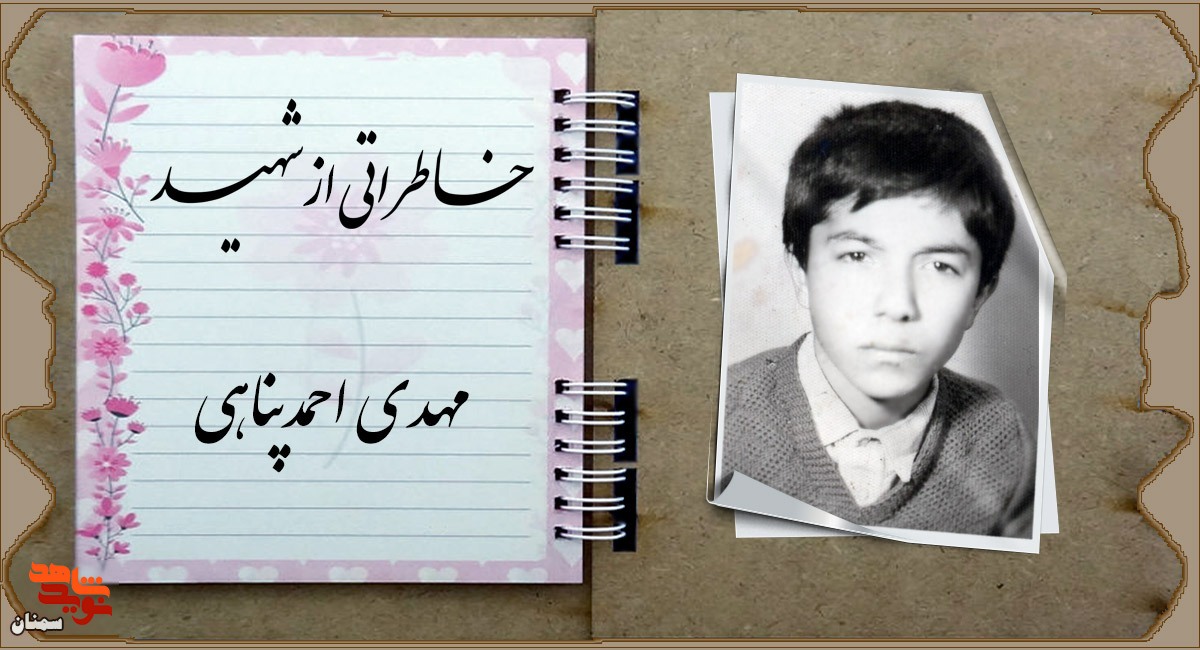 خاطراتی از شهید
مهدی احمدپناهی
نوید شاهد
سمنان